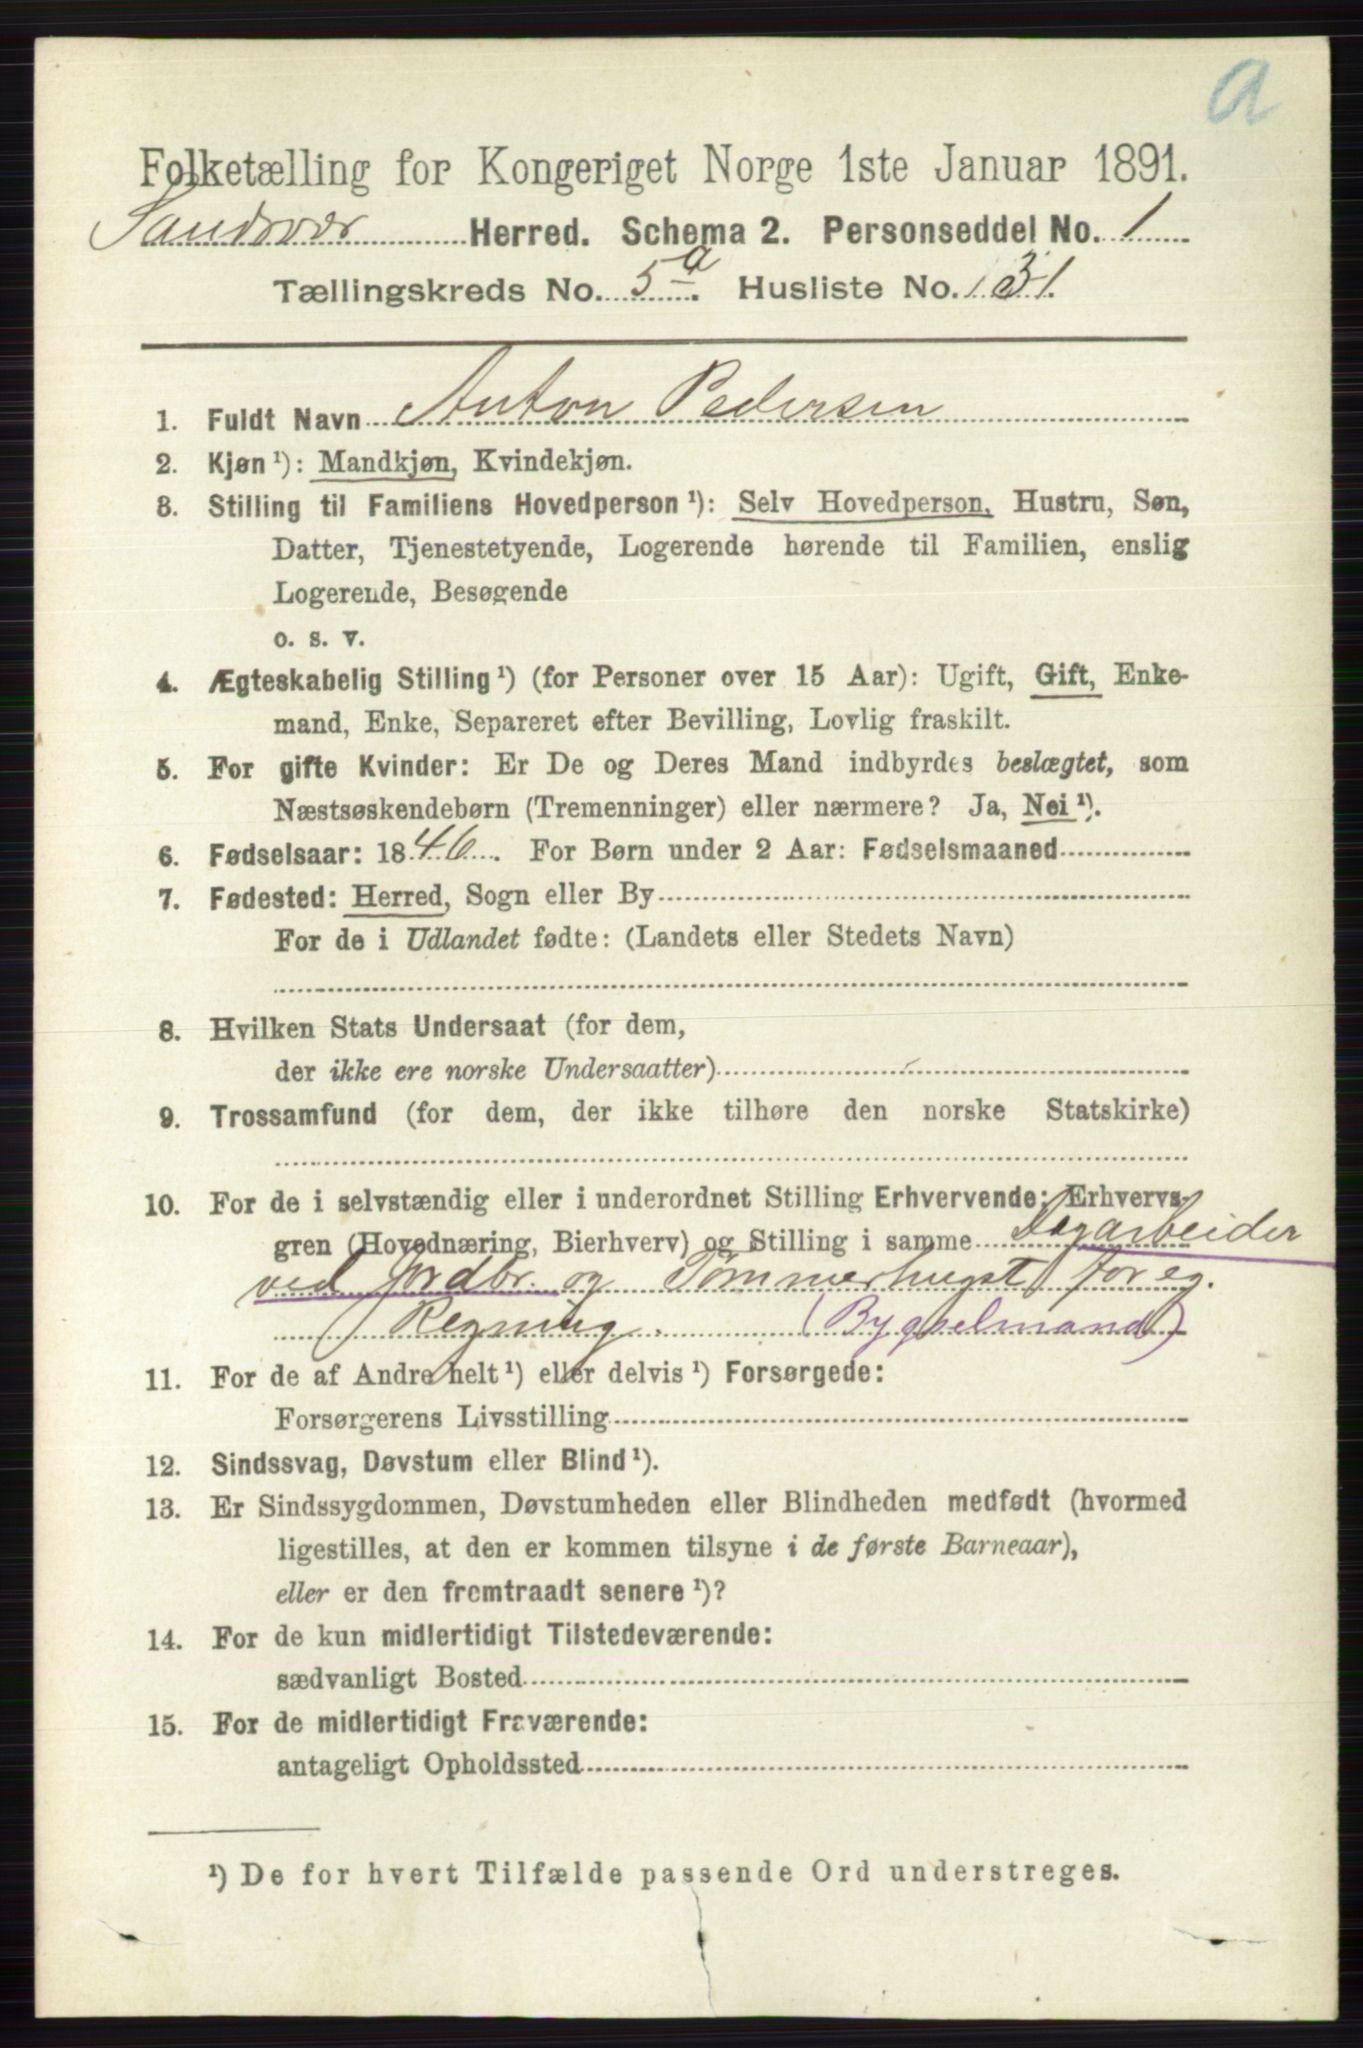 a
Folketælling for Kongeriget Norge 1ste Januar 1891.
Sandsvær Herred. Schema 2. Personseddel No. 1
Tællingskreds No. 5a. Husliste No. 131.
1. Fuldt Navn Anton Pedersen
2. Kjøn¹): Mandkjøn, Kvindekjøn.
3. Stilling til Familiens Hovedperson¹): Selv Hovedperson, Hustru, Søn,
Datter, Tjenestetyende, Logerende hørende til Familien, enslig
Logerende, Besøgende
o. s. v.
4. Ægteskabelig Stilling¹) (for Personer over 15 Aar): Ugift, Gift, Enke-
mand, Enke, Separeret efter Bevilling, Lovlig fraskilt.
5. For gifte Kvinder: Er De og Deres Mand indbyrdes beslægtet, som
Næstsøskendebørn (Tremenninger) eller nærmere? Ja, Nei¹).
6. Fødselsaar: 1846. For Børn under 2 Aar: Fødselsmaaned
7. Fødested: Herred, Sogn eller By
For de i Udlandet fødte: (Landets eller Stedets Navn)
8. Hvilken Stats Undersaat (for dem,
der ikke ere norske Undersaatter)
9. Trossamfund (for dem, der ikke tilhøre den norske Statskirke)
10. For de i selvstændig eller i underordnet Stilling Erhvervende: Erhvervs-
gren (Hovednæring, Bierhverv) og Stilling i samme Dagarbeider
ved Jordbr. og Tømmerhugst for eg.
Regning. (Bygselmand)
11. For de af Andre helt¹) eller delvis¹) Forsørgede:
Forsørgerens Livsstilling
12. Sindssvag, Døvstum eller Blind¹).
13. Er Sindssygdommen, Døvstumheden eller Blindheden medfødt (hvormed
ligestilles, at den er kommen tilsyne i de første Barneaar),
eller er den fremtraadt senere¹)?
14. For de kun midlertidigt Tilstedeværende:
sædvanligt Bosted
15. For de midlertidigt Fraværende:
antageligt Opholdssted
¹) De for hvert Tilfælde passende Ord understreges.